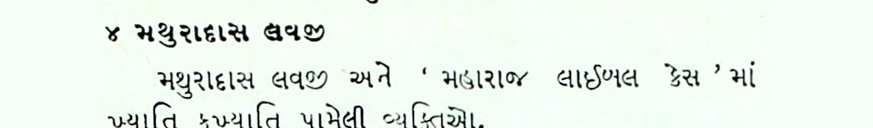 ૪ મથુરાદાસ લવજી
મથુરાદાસ લવજી અને ‘ મહારાજ લાઈબલ કેસ ’માં
ખ્યાતિ કુખ્યાતિ પામેલી વ્યક્તિઓ.